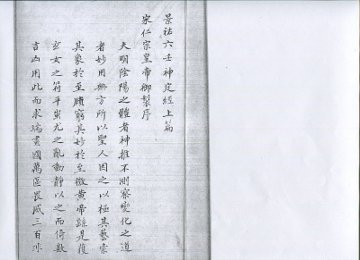 景祐六壬神定經上篇
宋仁宗皇帝御製序
夫明陰陽之體者神推不測窮變化之道
者妙用無方所以聖人因之以極其數索
其象於至賾窮其妙於至微黃帝得是後
玄女之符平蚩尤之亂動靜以之而倚數
吉凶用此而求端晝國萬區畏威三百非